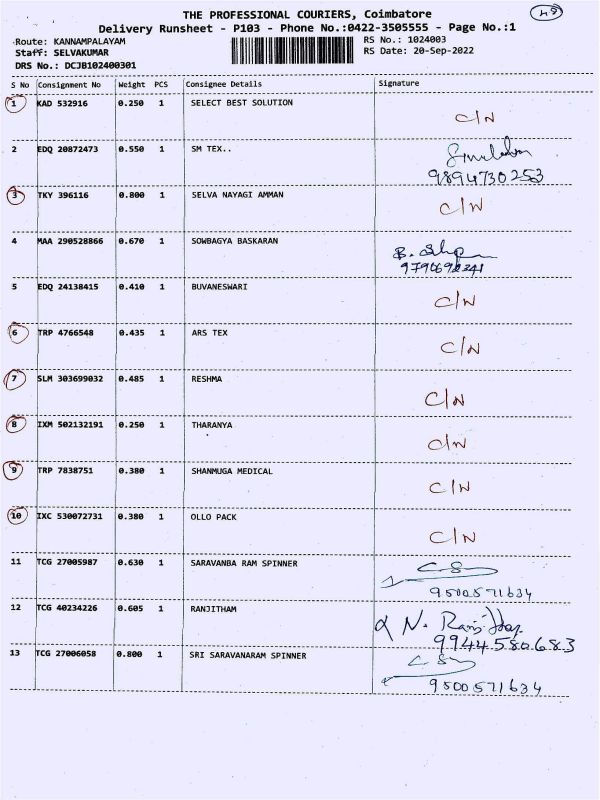 THE PROFESSIONAL COURIERS, Coimbatore
Delivery Runsheet - P103 - Phone No.:0422-3505555 - Page No.:1
Route: KANNAMPALAYAM RS No.: 1024003
Staff: SELVAKUMAR RS Date: 20-Sep-2022
DRS No.: DCJB102400301
S No Consignment No Weight PCS Consignee Details Signature
1 KAD 532916 0.250 1 SELECT BEST SOLUTION C/N
2 EDQ 20872473 0.550 1 SM TEX..
9894730253
3 TKY 396116 0.800 1 SELVA NAYAGI AMMAN C/N
4 MAA 290528866 0.670 1 SOWBAGYA BASKARAN
5 EDQ 24138415 0.410 1 BUVANESWARI C/N
6 TRP 4766548 0.435 1 ARS TEX C/N
7 SLM 303699032 0.485 1 RESHMA C/N
8 IXM 502132191 0.250 1 THARANYA C/N
9 TRP 7838751 0.380 1 SHANMUGA MEDICAL C/N
10 IXC 530072731 0.380 1 OLLO PACK C/N
11 TCG 27005987 0.630 1 SARAVANBA RAM SPINNER
9500571634
12 TCG 40234226 0.605 1 RANJITHAM
9944580683
13 TCG 27006058 0.800 1 SRI SARAVANARAM SPINNER
9500571634